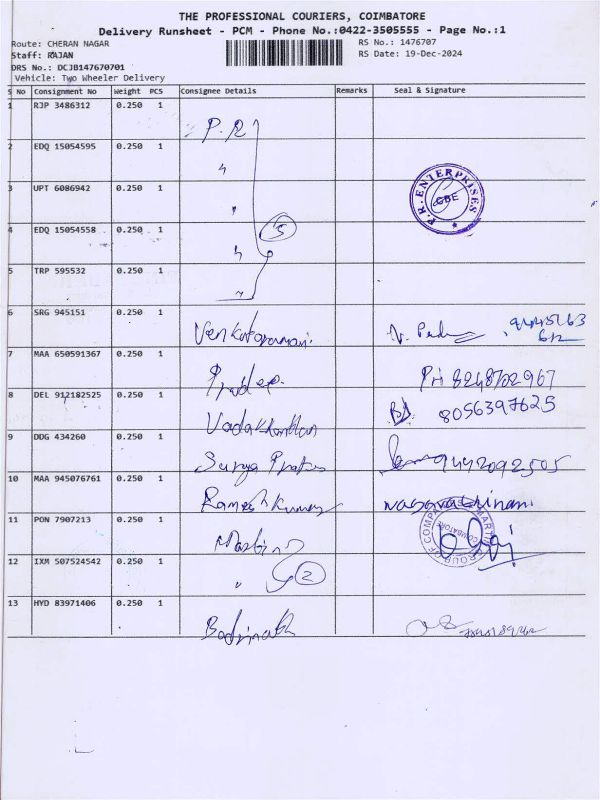 THE PROFESSIONAL COURIERS, COIMBATORE
Delivery Runsheet - PCM - Phone No.:0422-3505555 - Page No.:1
Route: CHERAN NAGAR
RS No.: 1476707
Staff: RAJAN
RS Date: 19-Dec-2024
DRS No.: DCJB147670701
Vehicle: Two Wheeler Delivery
S No Consignment No Weight PCS Consignee Details Remarks Seal & Signature
1 RJP 3486312 0.250 1 P.R
2 EDQ 15054595 0.250 1 "
3 UPT 6086942 0.250 1 " R.R. ENTERPRISES CBE
4 EDQ 15054558 0.250 1 " 5
5 TRP 595532 0.250 1 "
6 SRG 945151 0.250 1 Venkataramani
7 MAA 650591367 0.250 1 Pradeep 8248702967
8 DEL 912182525 0.250 1 8056397625
9 DDG 434260 0.250 1 Surya 9442092505
10 MAA 945076761 0.250 1 Ramesh Kumar
11 PON 7907213 0.250 1 Martin GROUP OF COMPANIES MARTIN COIMBATORE
12 IXM 507524542 0.250 1 " 2
13 HYD 83971406 0.250 1 Badrinath